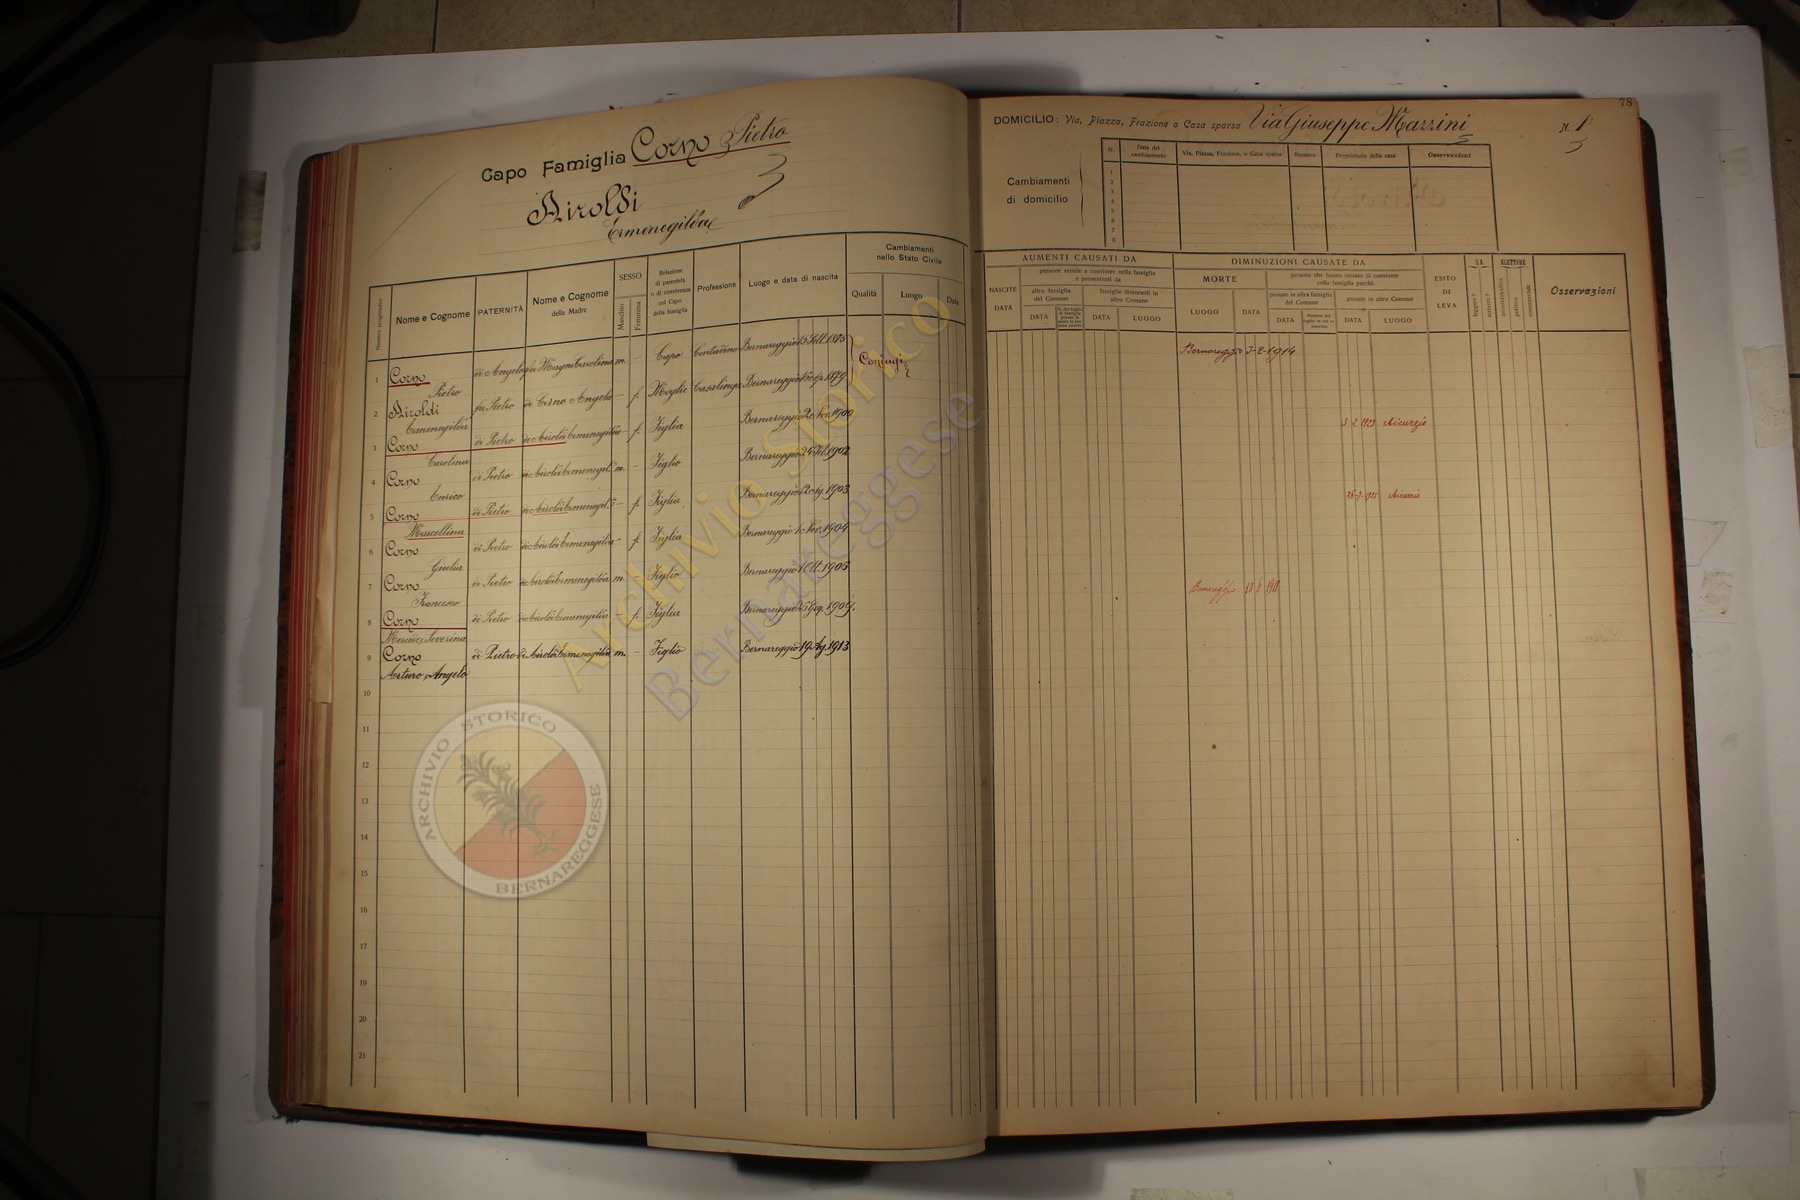 Capo Famiglia Corno Pietro
Airoldi
Ermenegilda
Numero progressivo
Nome e Cognome
PATERNITÀ
Nome e Cognome
della Madre
SESSO
Maschio
Femmina
Relazione
di parentela
o di convivenza
col Capo
della famiglia
Professione
Luogo e data di nascita
Cambiamenti
nello Stato Civile
Qualità
Luogo
Data
1 Corno Pietro di Angelo Magni Carolina m. - Capo Contadino Bernareggio 15 Sett. 1875 Coniugi
2 Airoldi Ermenegilda fu Pietro di Corno Angela - f. Moglie Casalinga Bernareggio 1879
3 Corno Carolina di Pietro di Airoldi Ermenegilda - f. Figlia Bernareggio 2 Nov. 1900
4 Corno Enrico di Pietro di Airoldi Ermenegil. m. - Figlio Bernareggio 24 Feb. 1902
5 Corno Marcellina di Pietro di Airoldi Ermenegil. - f. Figlia Bernareggio 1903
6 Corno Giulia di Pietro di Airoldi Ermenegilda - f. Figlia Bernareggio 1 Nov. 1904
7 Corno Francesco di Pietro di Airoldi Ermenegilda m. Figlio Bernareggio 1 Ott. 1905
8 Corno Severina di Pietro di Airoldi Ermenegilda - f. Figlia Bernareggio
9 Corno Arturo Angelo di Pietro di Airoldi Ermenegilda m. - Figlio Bernareggio 19 Ag. 1913
10
11
12
13
14
15
16
17
18
19
20
21
78
DOMICILIO: Via, Piazza, Frazione o Casa sparsa Via Giuseppe Mazzini N. 1
Cambiamenti
di domicilio
N.
Data del
cambiamento
Via, Piazza, Frazione, o Casa sparsa
Numero
Proprietario della casa
Osservazioni
1
2
3
4
5
6
7
8
AUMENTI CAUSATI DA
NASCITE
DATA
persone venute a convivere nella famiglia
e provenienti da
altra famiglia
del Comune
DATA
famiglie dimoranti in
altro Comune
DATA
LUOGO
DIMINUZIONI CAUSATE DA
MORTE
LUOGO
DATA
persone che hanno cessato di convivere
nella famiglia perchè
passate in altra famiglia
del Comune
DATA
passate in altro Comune
DATA
LUOGO
ESITO
DI
LEVA
SA
leggere?
scrivere?
ELETTORE
amministrativo
politico
commerciale
Osservazioni
Bernareggio 3-2-1914
3 2 1923 Aicurzio
1925
Bernareggio
Archivio Storico
Bernareggese
ARCHIVIO STORICO
BERNAREGGESE